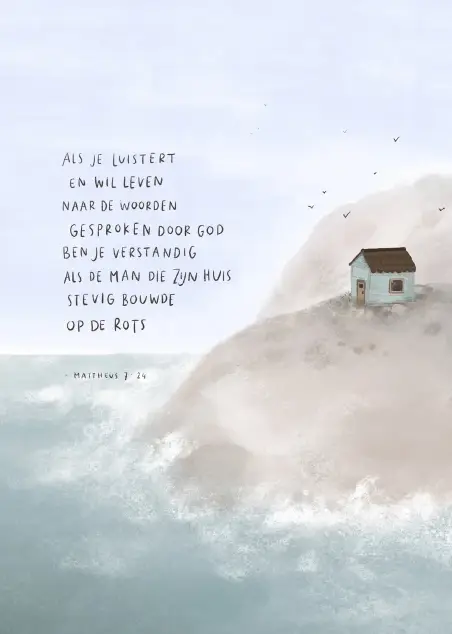 ALS JE LUISTERT
EN WIL LEVEN
NAAR DE WOORDEN
GESPROKEN DOOR GOD
BEN JE VERSTANDIG
ALS DE MAN DIE ZIJN HUIS
STEVIG BOUWDE
OP DE ROTS
- MATTHEUS 7:24